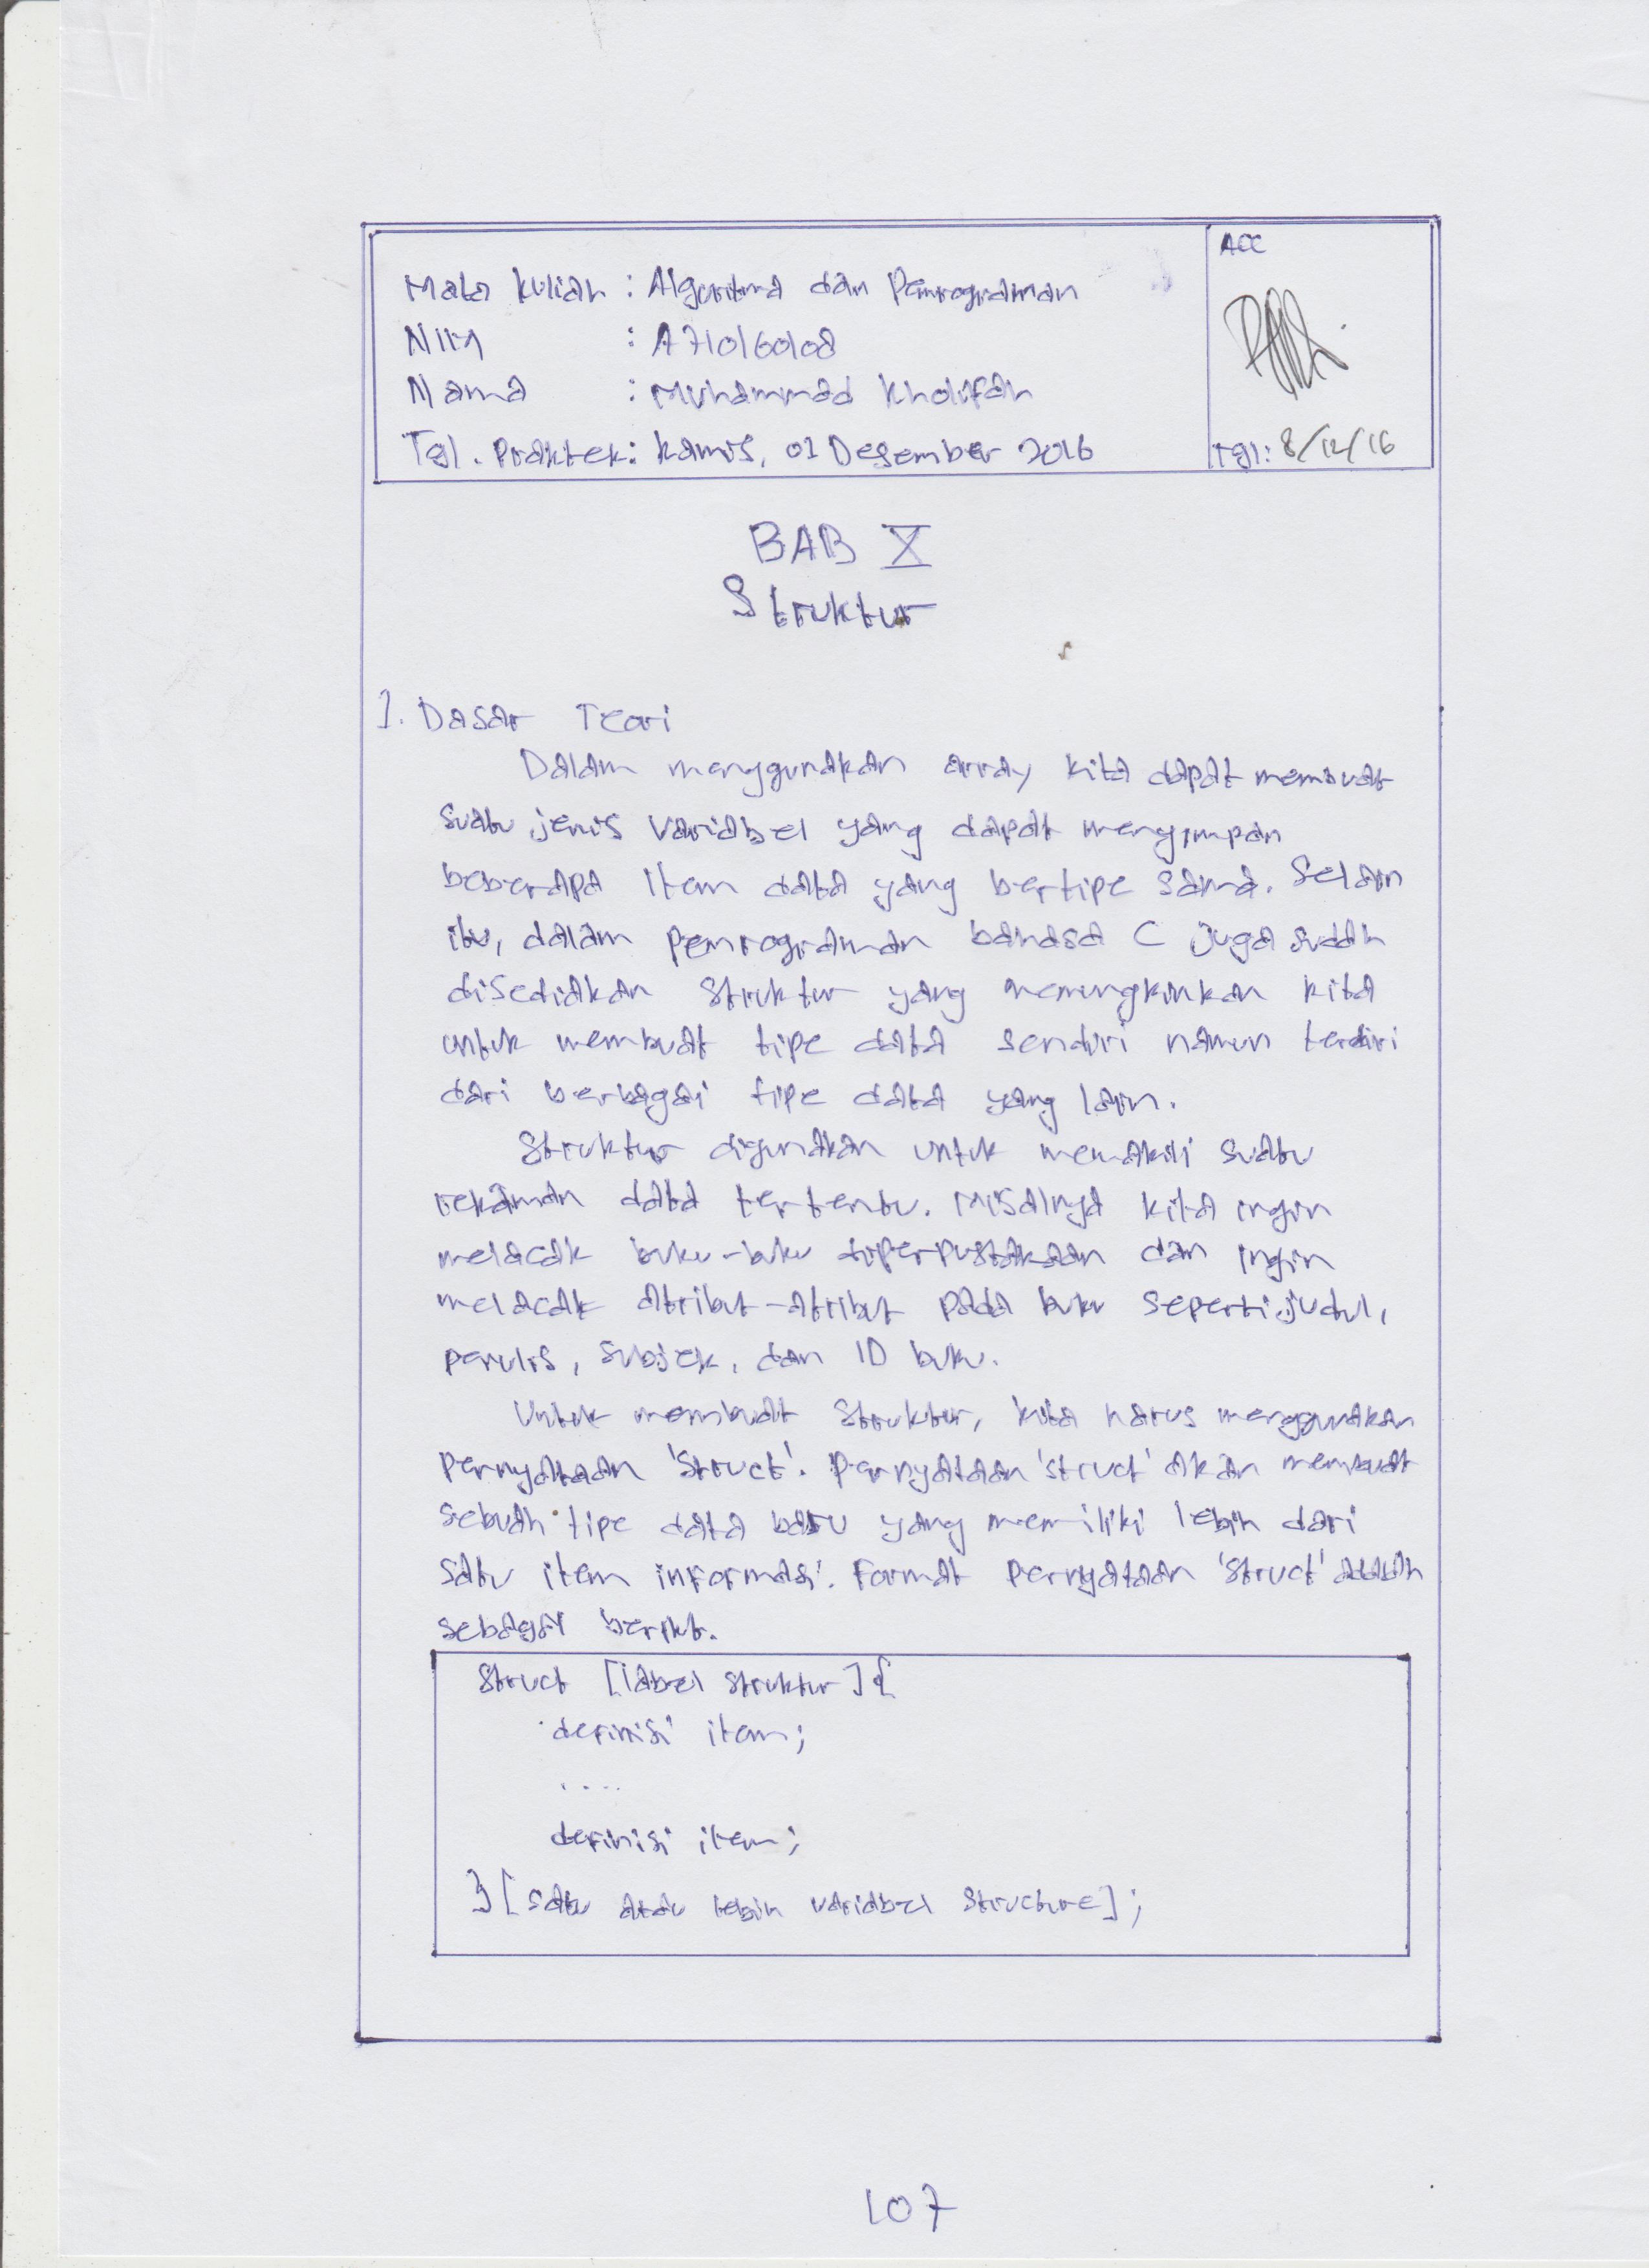 Mata kuliah : Algoritma dan Pemrograman
NIM : A710160108
Nama : Muhammad Kholifah
Tgl. Praktek : Kamis, 01 Desember 2016
ACC
Tgl : 8/12/16
BAB X
Struktur
1. Dasar Teori
Dalam menggunakan array kita dapat membuat
suatu jenis variabel yang dapat menyimpan
beberapa item data yang bertipe sama. Selain
itu, dalam pemrograman bahasa C juga sudah
disediakan struktur yang memungkinkan kita
untuk membuat tipe data sendiri namun terdiri
dari berbagai tipe data yang lain.
Struktur digunakan untuk mewakili suatu
rekaman data tertentu. Misalnya kita ingin
melacak buku-buku diperpustakaan dan ingin
melacak atribut-atribut pada buku seperti judul,
penulis, subjek, dan ID buku.
Untuk membuat struktur, kita harus menggunakan
pernyataan 'struct'. Pernyataan 'struct' akan membuat
sebuah tipe data baru yang memiliki lebih dari
satu item informasi. Format pernyataan 'struct' adalah
sebagai berikut.
Struct [label struktur] {
definisi item;
....
definisi item;
} [satu atau lebih variabel structure];
107